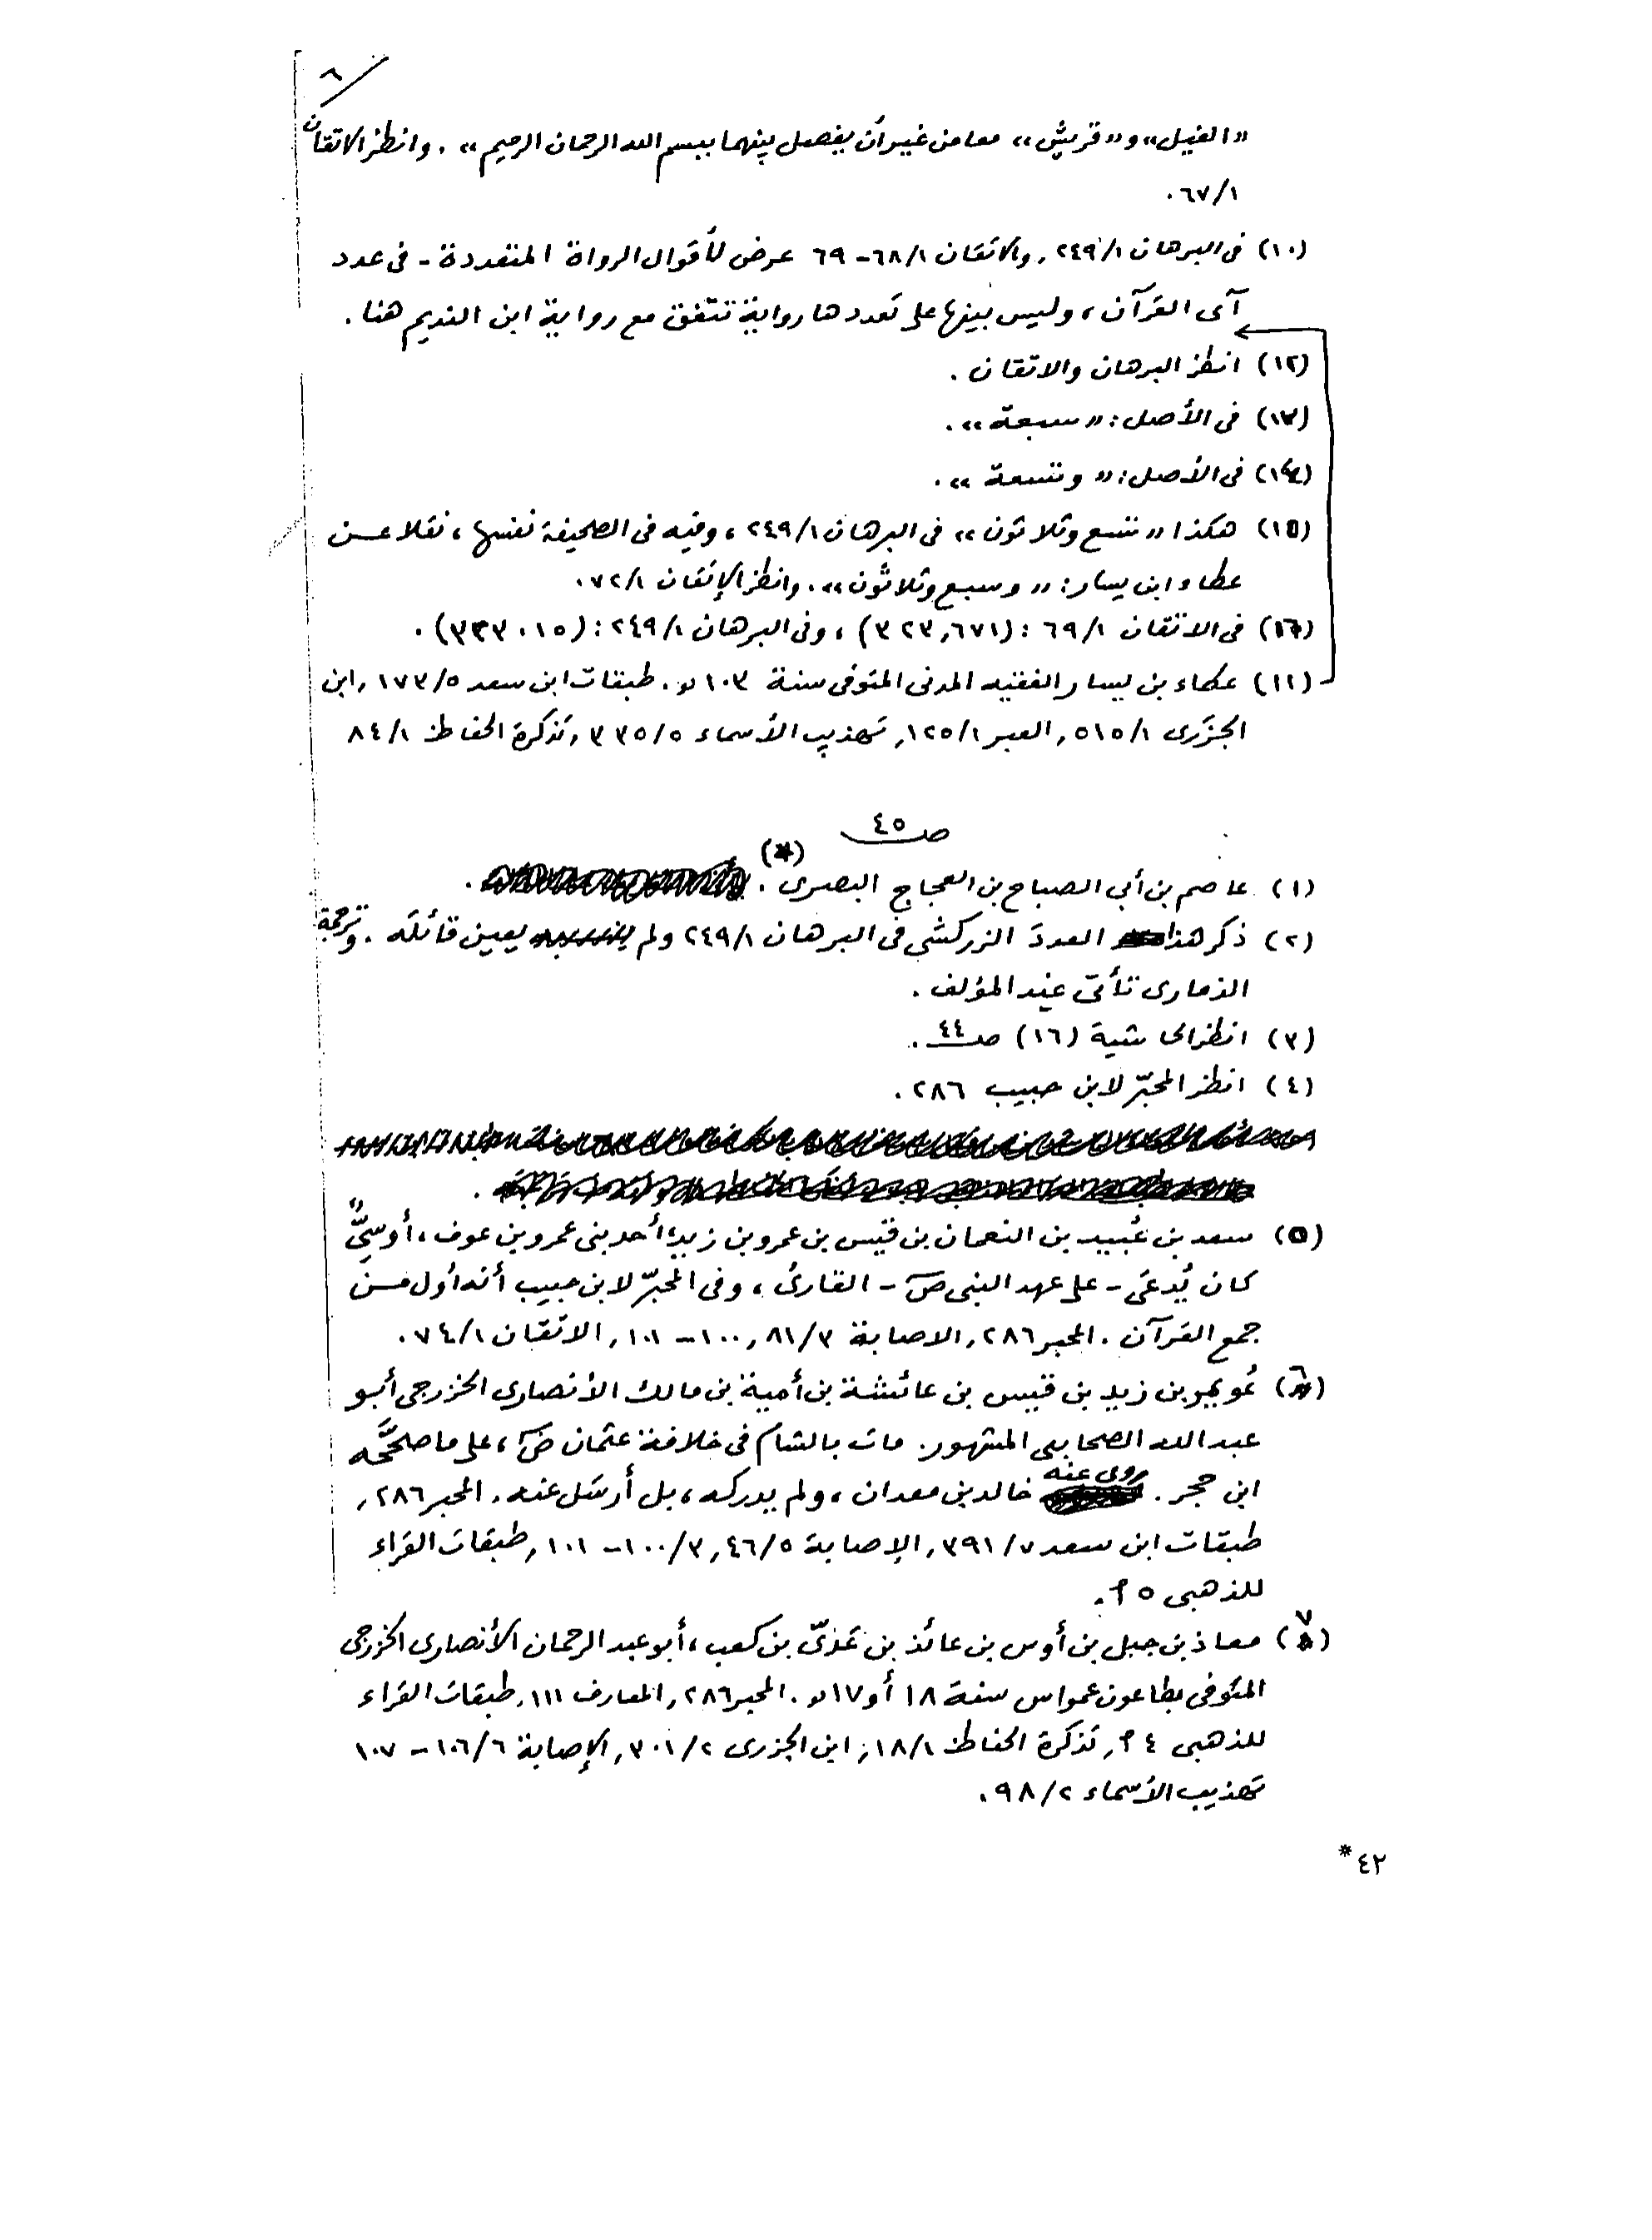 ٦
«الفيل» و«قريش» معا من غير أن يفصل بينهما ببسم الله الرحمان الرحيم». وانظر الاتقان
٦٧/١.
(١٠) في البرهان ٢٤٩/١, والاتقان ٦٨/١-٦٩ عرض لأقوال الرواة المتعددة - في عدد
آى القرآن، وليس بينها على تعددها رواية تتفق مع رواية ابن النديم هنا.
(١٢) انظر البرهان والاتقان.
(١٣) في الأصل: «سبعة».
(١٤) في الأصل: «وتسعة».
(١٥) هكذا «تسع وثلاثون» في البرهان ٢٤٩/١، وفيه في الصحيفة نفسها، نقلا عن
عطاء ابن يسار: «وسبع وثلاثون». وانظر الإتقان ٧٢/١.
(١٦) في الاتقان ٦٩/١: (٣٢٣,٦٧١)، وفي البرهان ٢٤٩/١: (٣٣٣٠١٥).
(١١) عطاء بن يسار الفقيه المدنى المتوفى سنة ١٠٣ ھ. طبقات ابن سعد ١٧٣/٥, ابن
الجزرى ٥١٥/١, العبر ١٢٥/١, تهذيب الأسماء ٣٣٥/٥, تذكرة الحفاظ ٨٤/١
ص ٤٥
(*)
(١) عاصم بن أبى الصباح بن العجاج البصرى.
(٢) ذكر هذا العدد الزركشى في البرهان ٢٤٩/١ ولم يعين قائله. وترجمة
الذمارى تأتى عند المؤلف.
(٣) انظر الحاشية (١٦) ص ٤٤.
(٤) انظر المحبّر لابن حبيب ٢٨٦.
(٥) سعد بن عُبيد بن النعمان بن قيس بن عمرو بن زيد، أحد بنى عمرو بن عوف، أوسيٌّ
كان يُدعَى - على عهد النبى ص - القارئ، وفى المحبّر لابن حبيب أنه أول من
جمع القرآن. المحبر ٢٨٦, الاصابة ٨١/٣, ١٠٠-١٠١, الاتقان ٧٤/١.
(٦) عُويمر بن زيد بن قيس بن عائشة بن أمية بن مالك الأنصارى الخزرجى أبو
عبد الله الصحابى المشهور. مات بالشام فى خلافة عثمان ض، على ما صححَّه
ابن حجر. روى عنه خالد بن معدان، ولم يدركه، بل أرسَل عنه. المحبر ٢٨٦,
طبقات ابن سعد ٣٩١/٧, الإصابة ٤٦/٥, ١٠٠/٣-١٠١, طبقات القراء
للذهبى ٥ ٢.
(٧) معاذ بن جبل بن أوس بن عائذ بن عَدىّ بن كعب، أبو عبد الرحمان الأنصارى الخزرجى
المتوفى بطاعون عمواس سنة ١٨ أو ١٧ ھ. المحبر ٢٨٦, المعارف ١١١, طبقات القراء
للذهبى ٤ ٢, تذكرة الحفاظ ١٨/١, ابن الجزرى ٣٠١/٢, الإصابة ١٠٦/٦-١٠٧
تهذيب الأسماء ٩٨/٢.
٤٢*